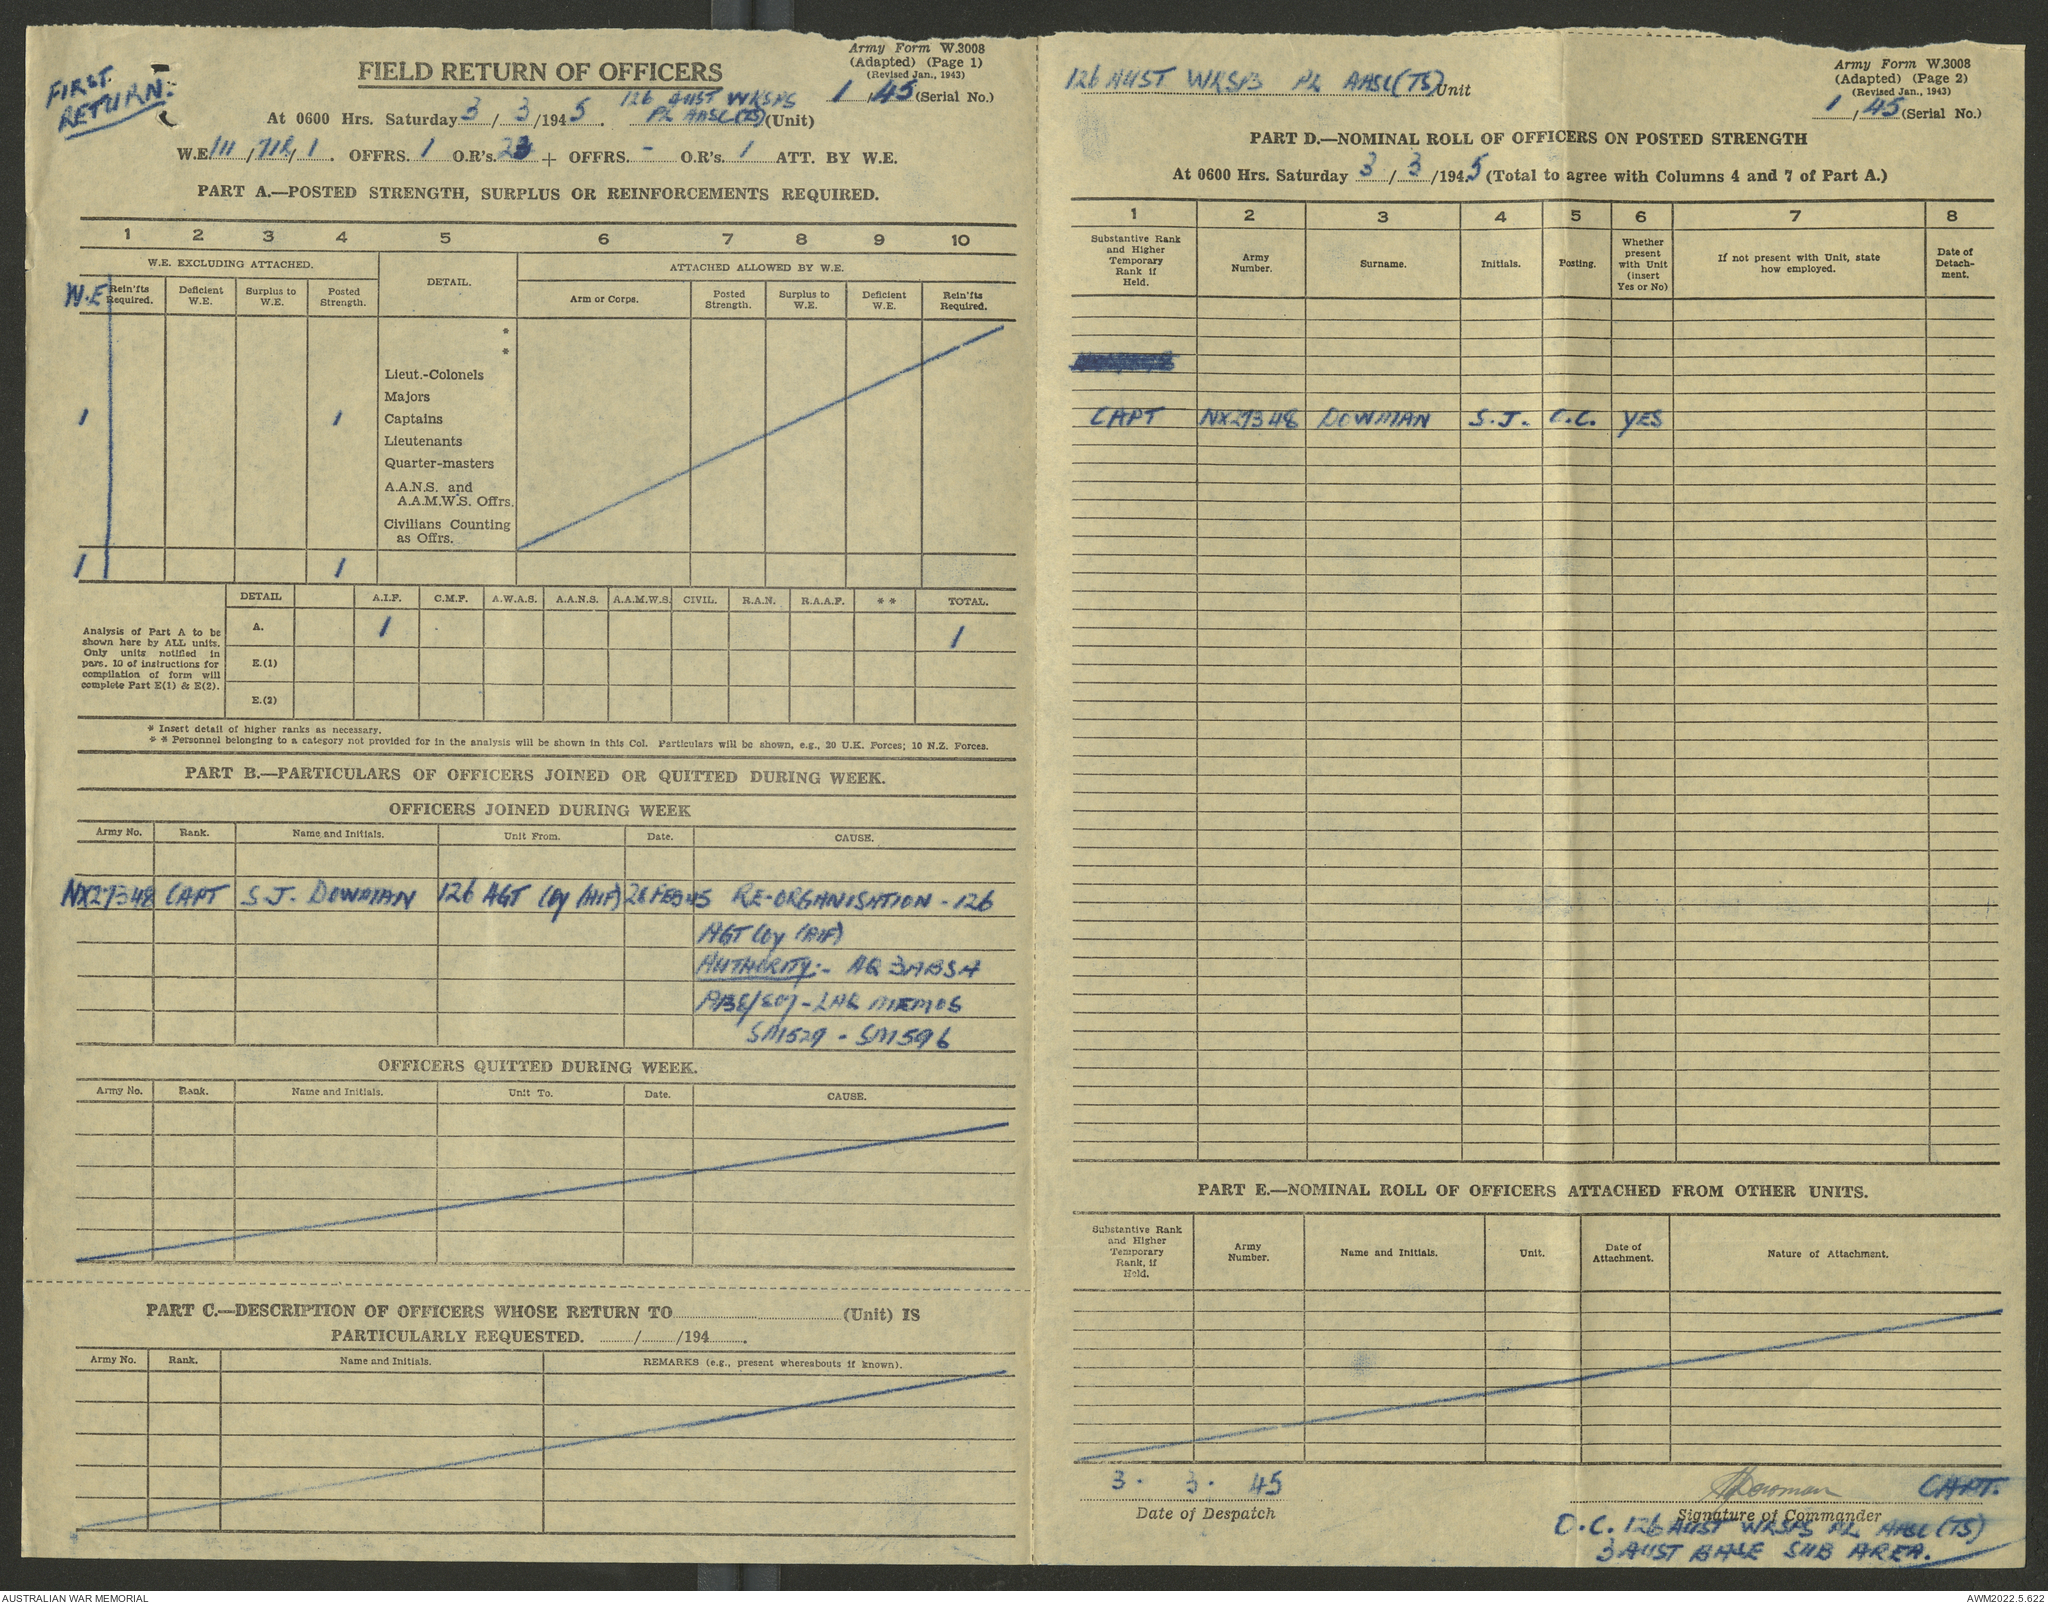 FIRST
RETURN:
Army Form W.3008
(Adapted) (Page 1)
(Revised Jan., 1943)
FIELD RETURN OF OFFICERS
1 / 45 (Serial No.)
At 0600 Hrs. Saturday 3 / 3 /1945. 126 AUST WKSPS PL AASC(TS) (Unit)
W.E. III / 71R / 1. OFFRS. 1 O.R's. 23 + OFFRS. - O.R's. 1 ATT. BY W.E.
PART A.—POSTED STRENGTH, SURPLUS OR REINFORCEMENTS REQUIRED.
1 2 3 4 5 6 7 8 9 10
W.E. EXCLUDING ATTACHED. DETAIL. ATTACHED ALLOWED BY W.E.
W.E Rein'fts Required. Deficient W.E. Surplus to W.E. Posted Strength. Arm or Corps. Posted Strength. Surplus to W.E. Deficient W.E. Rein'fts Required.
*
*
Lieut.-Colonels
Majors
1 1 Captains
Lieutenants
Quarter-masters
A.A.N.S. and
A.A.M.W.S. Offrs.
Civilians Counting
as Offrs.
1 1
DETAIL A.I.F. C.M.F. A.W.A.S. A.A.N.S. A.A.M.W.S. CIVIL. R.A.N. R.A.A.F. * * TOTAL.
Analysis of Part A to be
shown here by ALL units.
Only units notified in
pars. 10 of instructions for
compilation of form will
complete Part E(1) & E(2).
A. 1 1
E.(1)
E.(2)
* Insert detail of higher ranks as necessary.
* * Personnel belonging to a category not provided for in the analysis will be shown in this Col. Particulars will be shown, e.g., 20 U.K. Forces; 10 N.Z. Forces.
PART B.—PARTICULARS OF OFFICERS JOINED OR QUITTED DURING WEEK.
OFFICERS JOINED DURING WEEK
Army No. Rank. Name and Initials. Unit From. Date. CAUSE.
NX27348 CAPT S.J. DOWMAN 126 AGT Coy (AIF) 28 FEB 45 RE-ORGANISATION - 126
AGT Coy (AIF)
AUTHORITY:- AQ 3ABSA
SM1529 - SM1596
OFFICERS QUITTED DURING WEEK.
Army No. Rank. Name and Initials. Unit To. Date. CAUSE.
PART C.—DESCRIPTION OF OFFICERS WHOSE RETURN TO (Unit) IS
PARTICULARLY REQUESTED. / /194 .
Army No. Rank. Name and Initials. REMARKS (e.g., present whereabouts if known).
Army Form W.3008
(Adapted) (Page 2)
(Revised Jan., 1943)
126 AUST WKSPS PL AASC(TS) Unit
1 / 45 (Serial No.)
PART D.—NOMINAL ROLL OF OFFICERS ON POSTED STRENGTH
At 0600 Hrs. Saturday 3 / 3 /1945 (Total to agree with Columns 4 and 7 of Part A.)
1 2 3 4 5 6 7 8
Substantive Rank and Higher Temporary Rank if Held. Army Number. Surname. Initials. Posting. Whether present with Unit (insert Yes or No) If not present with Unit, state how employed. Date of Detachment.
CAPT NX27348 DOWMAN S.J. O.C. YES
PART E.—NOMINAL ROLL OF OFFICERS ATTACHED FROM OTHER UNITS.
Substantive Rank and Higher Temporary Rank, if Held. Army Number. Name and Initials. Unit. Date of Attachment. Nature of Attachment.
3. 3. 45
Date of Despatch
SJDowman CAPT.
Signature of Commander
O.C. 126 AUST WKSPS PL AASC(TS)
3 AUST BASE SUB AREA.
AUSTRALIAN WAR MEMORIAL
AWM2022.5.622